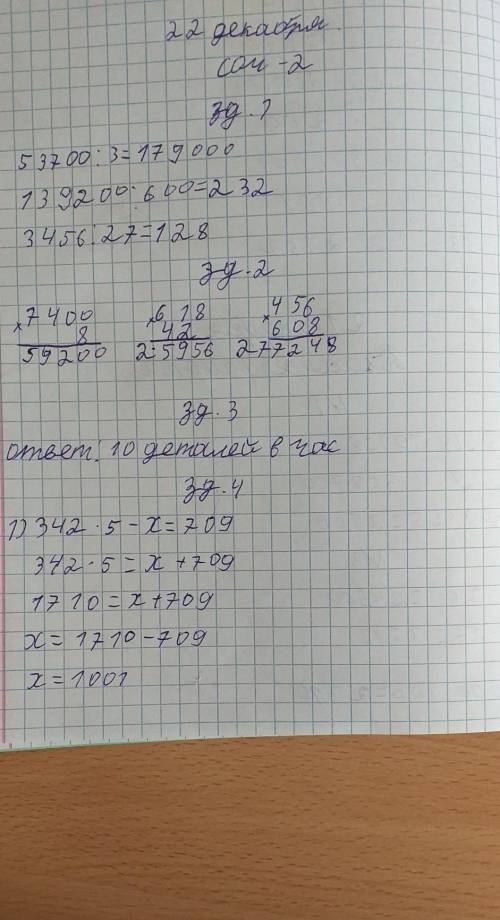 22 декабря.
соч -2
зд. 1
53700:3=179000
139200:600=232
3456:27=128
зд. 2
×7400 ×618 ×456
8 42 608
59200 25956 277248
зд. 3
ответ: 10 деталей в час
зд. 4
1) 342·5-x=709
342·5=x+709
1710=x+709
x=1710-709
x=1001